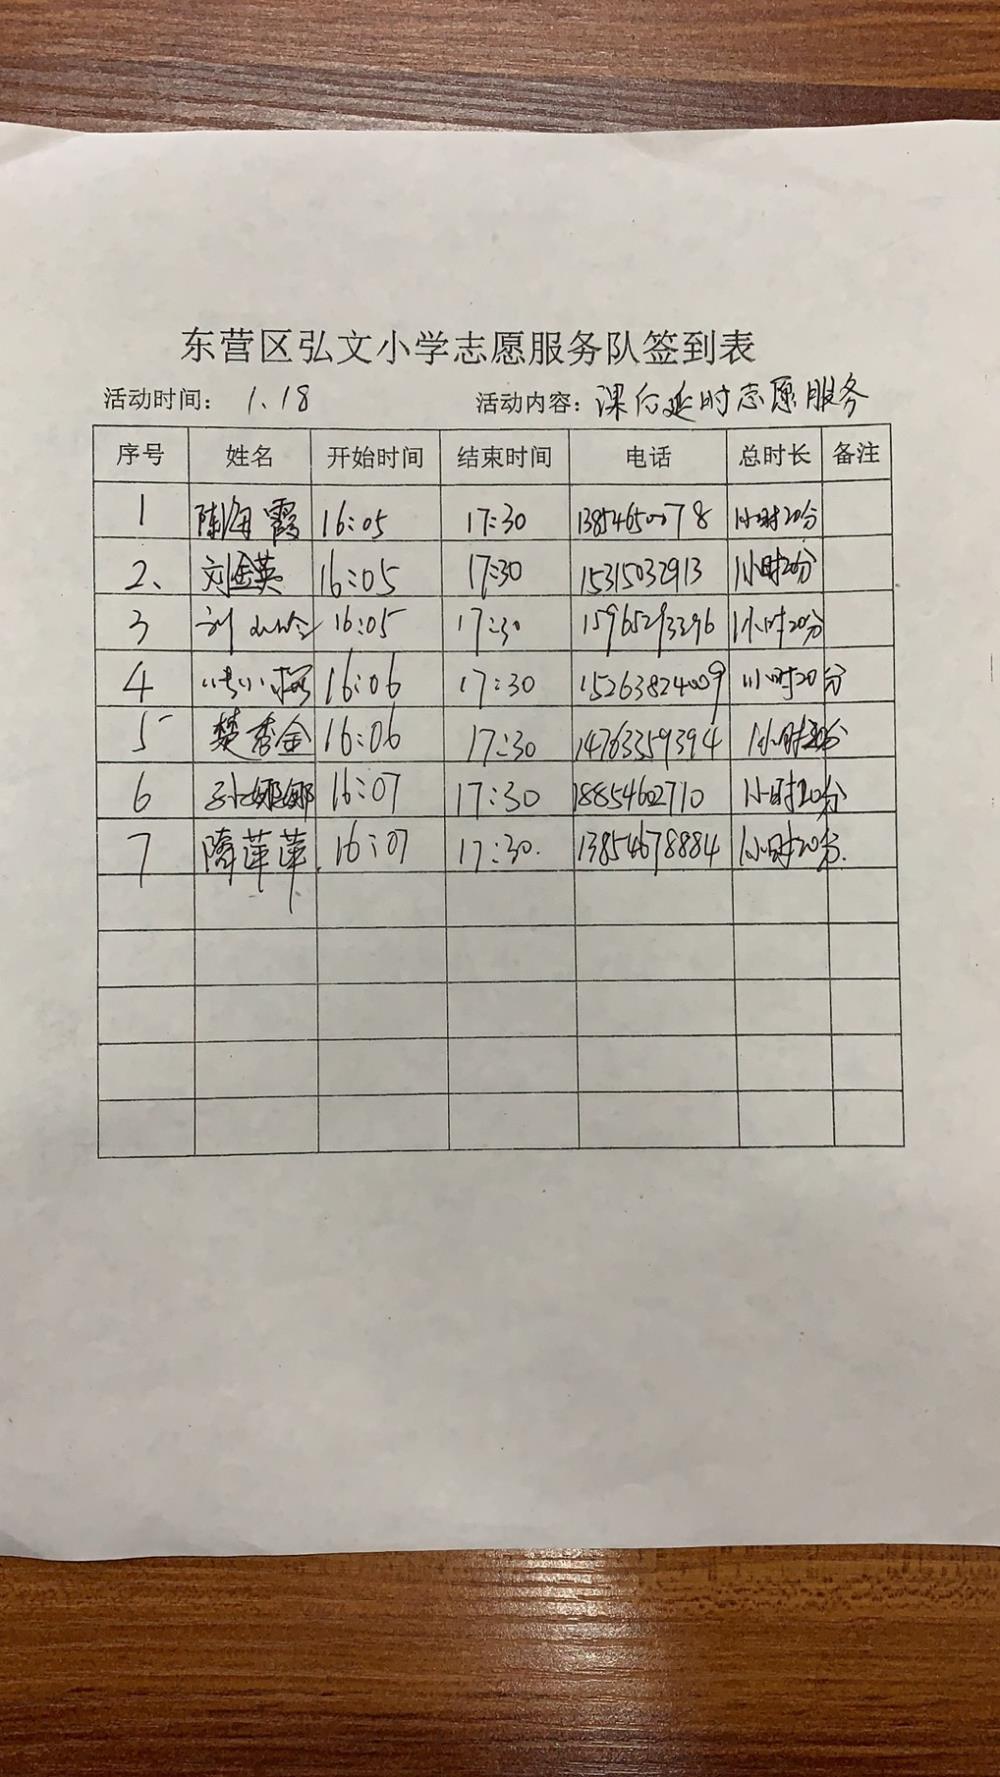 东营区弘文小学志愿服务队签到表
活动时间: 1.18 活动内容: 课后延时志愿服务
序号 姓名 开始时间 结束时间 电话 总时长 备注
1 陈海霞 16:05 17:30 13854650078 1小时20分
2、 刘金英 16:05 17:30 15315032913 1小时20分
3 刘 16:05 17:30 15965293296 1小时20分
4 16:06 17:30 15263824009 1小时20分
5 楚秀金 16:06 17:30 14763359394 1小时20分
6 孙娜娜 16:07 17:30 18854602710 1小时20分
7 隋萍萍 16:07 17:30. 13854678884 1小时20分.